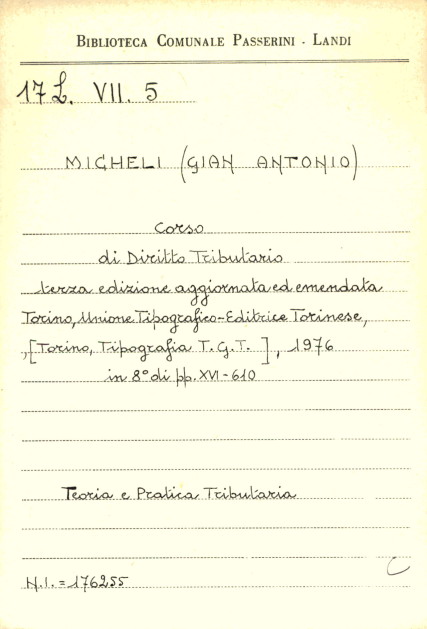 BIBLIOTECA COMUNALE PASSERINI - LANDI
17 L. VII. 5
MICHELI (GIAN ANTONIO)
Corso
di Diritto Tributario
terza edizione aggiornata ed emendata
Torino, Unione Tipografico-Editrice Torinese,
,[Torino, Tipografia T.G.T. ], 1976
in 8° di pp. XVI-610
Teoria e Pratica Tributaria
C
N.I. = 176255